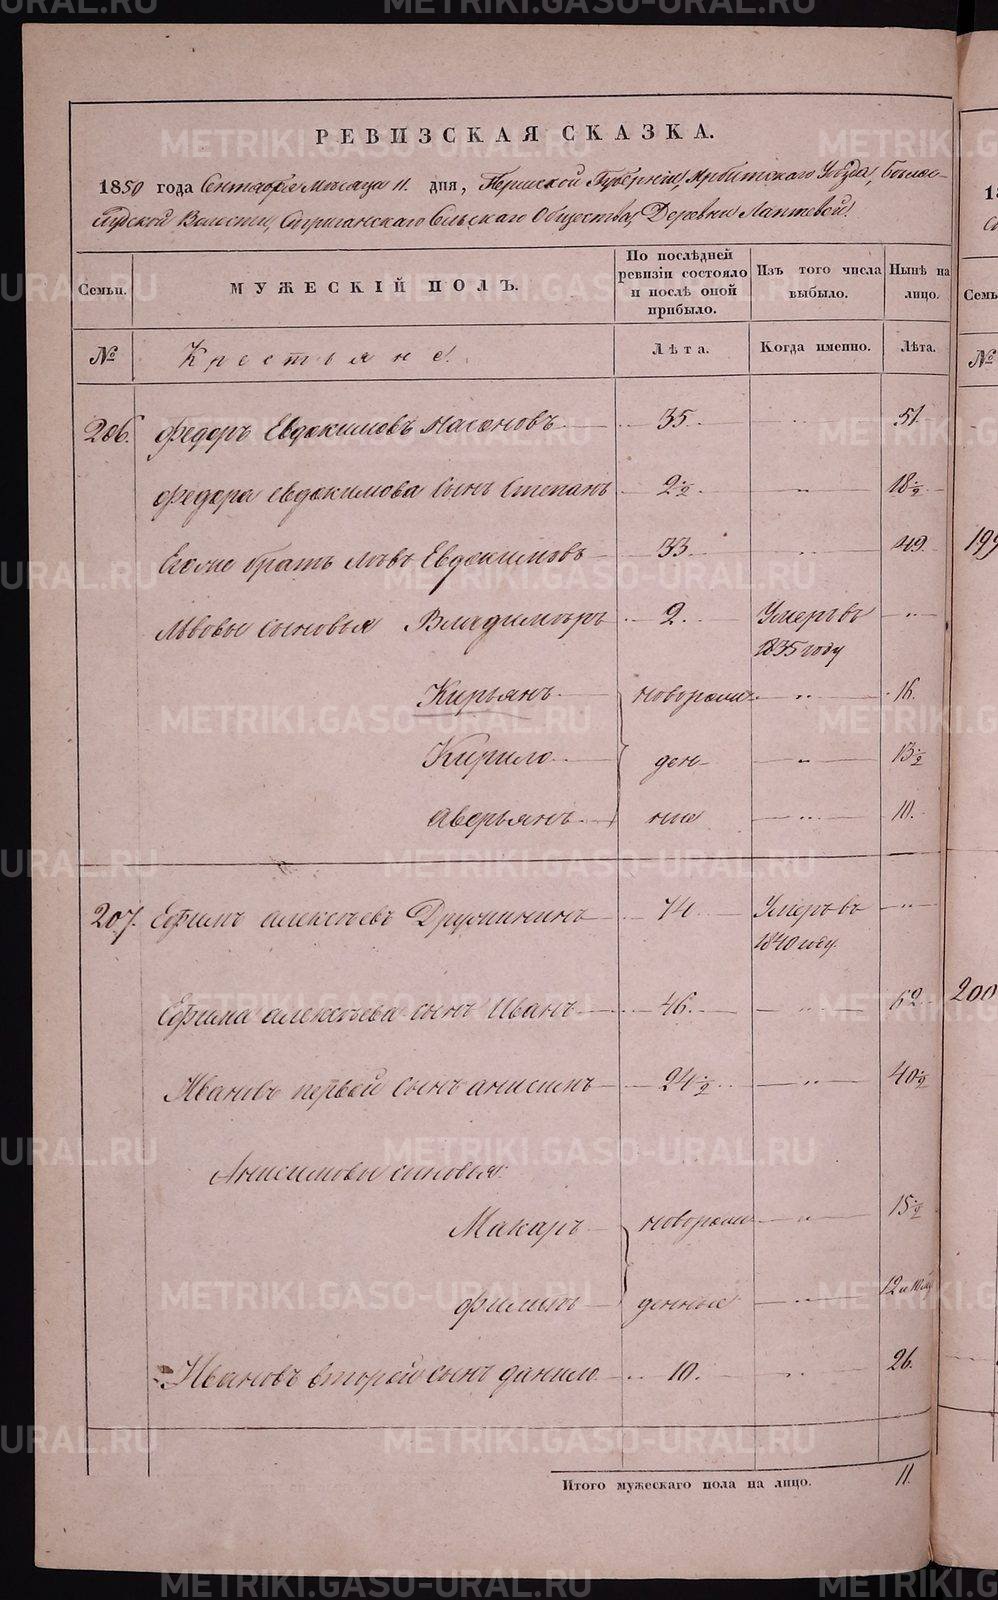 РЕВИЗСКАЯ СКАЗКА.
1850 года Сентября месяца 11. дня, Пермской Губернии, Ирбитского Уезда,
Волости, Стриганского Сельского Общества, Деревни Лаптевой.
Семьи. МУЖЕСКІЙ ПОЛЪ. По послѣдней ревизіи состояло и послѣ оной прибыло. Изъ того числа выбыло. Нынѣ на лицо.
№ Крестьяне. Лѣта. Когда именно. Лѣта.
206. Федоръ Евдокимовъ Насоновъ 35 „ 51
Федора Евдокимова сынъ Степанъ 2 ½ „ 18 ½
Его же братъ Львъ Евдокимовъ 33 „ 49
Львовы сыновья Владимиръ 2. Умеръ въ 1835 году „
Кирьянъ новорож- „ 16.
Кирило ден- „ 13 ½
Аверьянъ ные „ 10.
207. Ефимъ Алексѣевъ Дружининъ 74 Умеръ въ 1840 году. „
Ефима Алексѣева сынъ Иванъ 46. „ 62
Ивановъ первой сынъ Анисимъ 24 ½ „ 40 ½
Анисимовы сыновья:
Макаръ новорож- „ 15 ½
Филипъ денные „
Ивановъ второй сынъ Данило 10. „ 26.
Итого мужескаго пола на лицо. 11.
199
200
METRIKI.GASO-URAL.RU